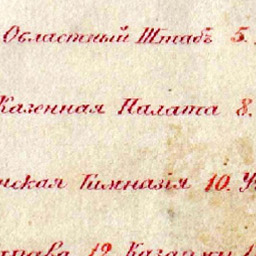 Областный Штабъ 5.
Казенная Палата 8.
нская Гимназія 10. У
права 12. Казармы 1